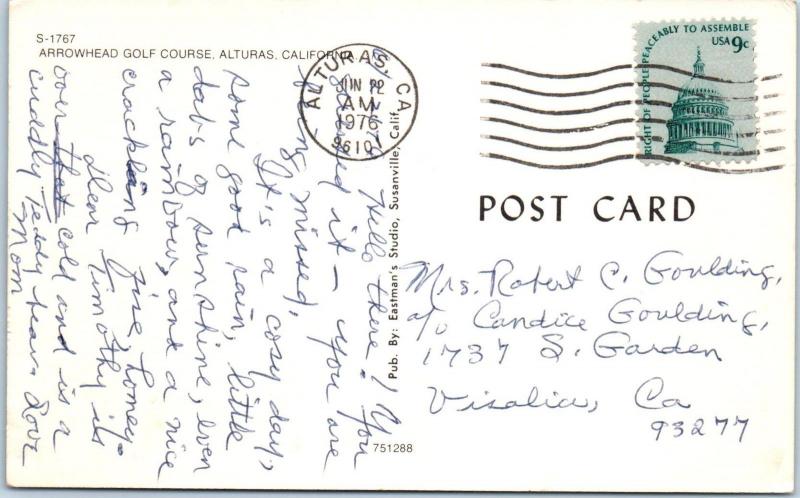 S-1767
ARROWHEAD GOLF COURSE, ALTURAS, CALIFORNIA
Hello there! You
guessed it — you are
being missed.
It's a cosy day,
some good rain, little
dabs of sunshine, even
a rainbow, and a nice
crackling fire, honey.
Dear Timothy is
over that cold and is a
cuddly Teddy bear. Love
Mom
Pub. By: Eastman's Studio, Susanville, Calif.
751288
ALTURAS, CA
JUN 22
AM
1976
96101
RIGHT OF PEOPLE PEACEABLY TO ASSEMBLE
USA 9c
POST CARD
Mrs. Robert C. Goulding,
c/o Candice Goulding,
1737 S. Garden
Visalia, Ca
93277